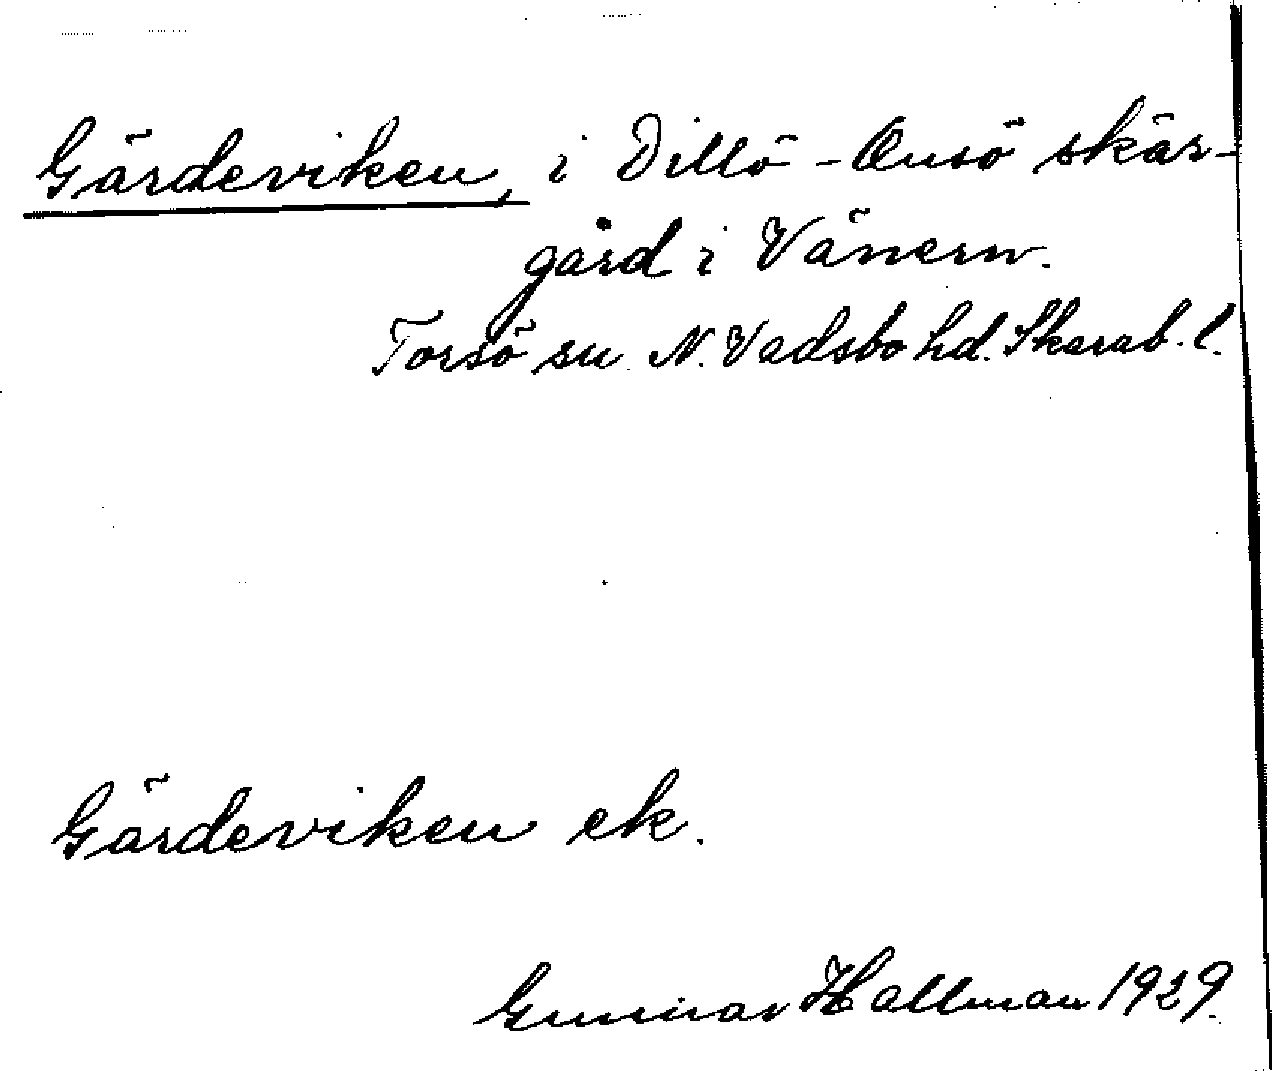 Gärdeviken, i Dillö - Onsö skär-
gård i Vänern.
Torsö sn. N. Vadsbo hd. Skarab. l.
Gärdeviken ek.
Gunnar Hallman 1929.